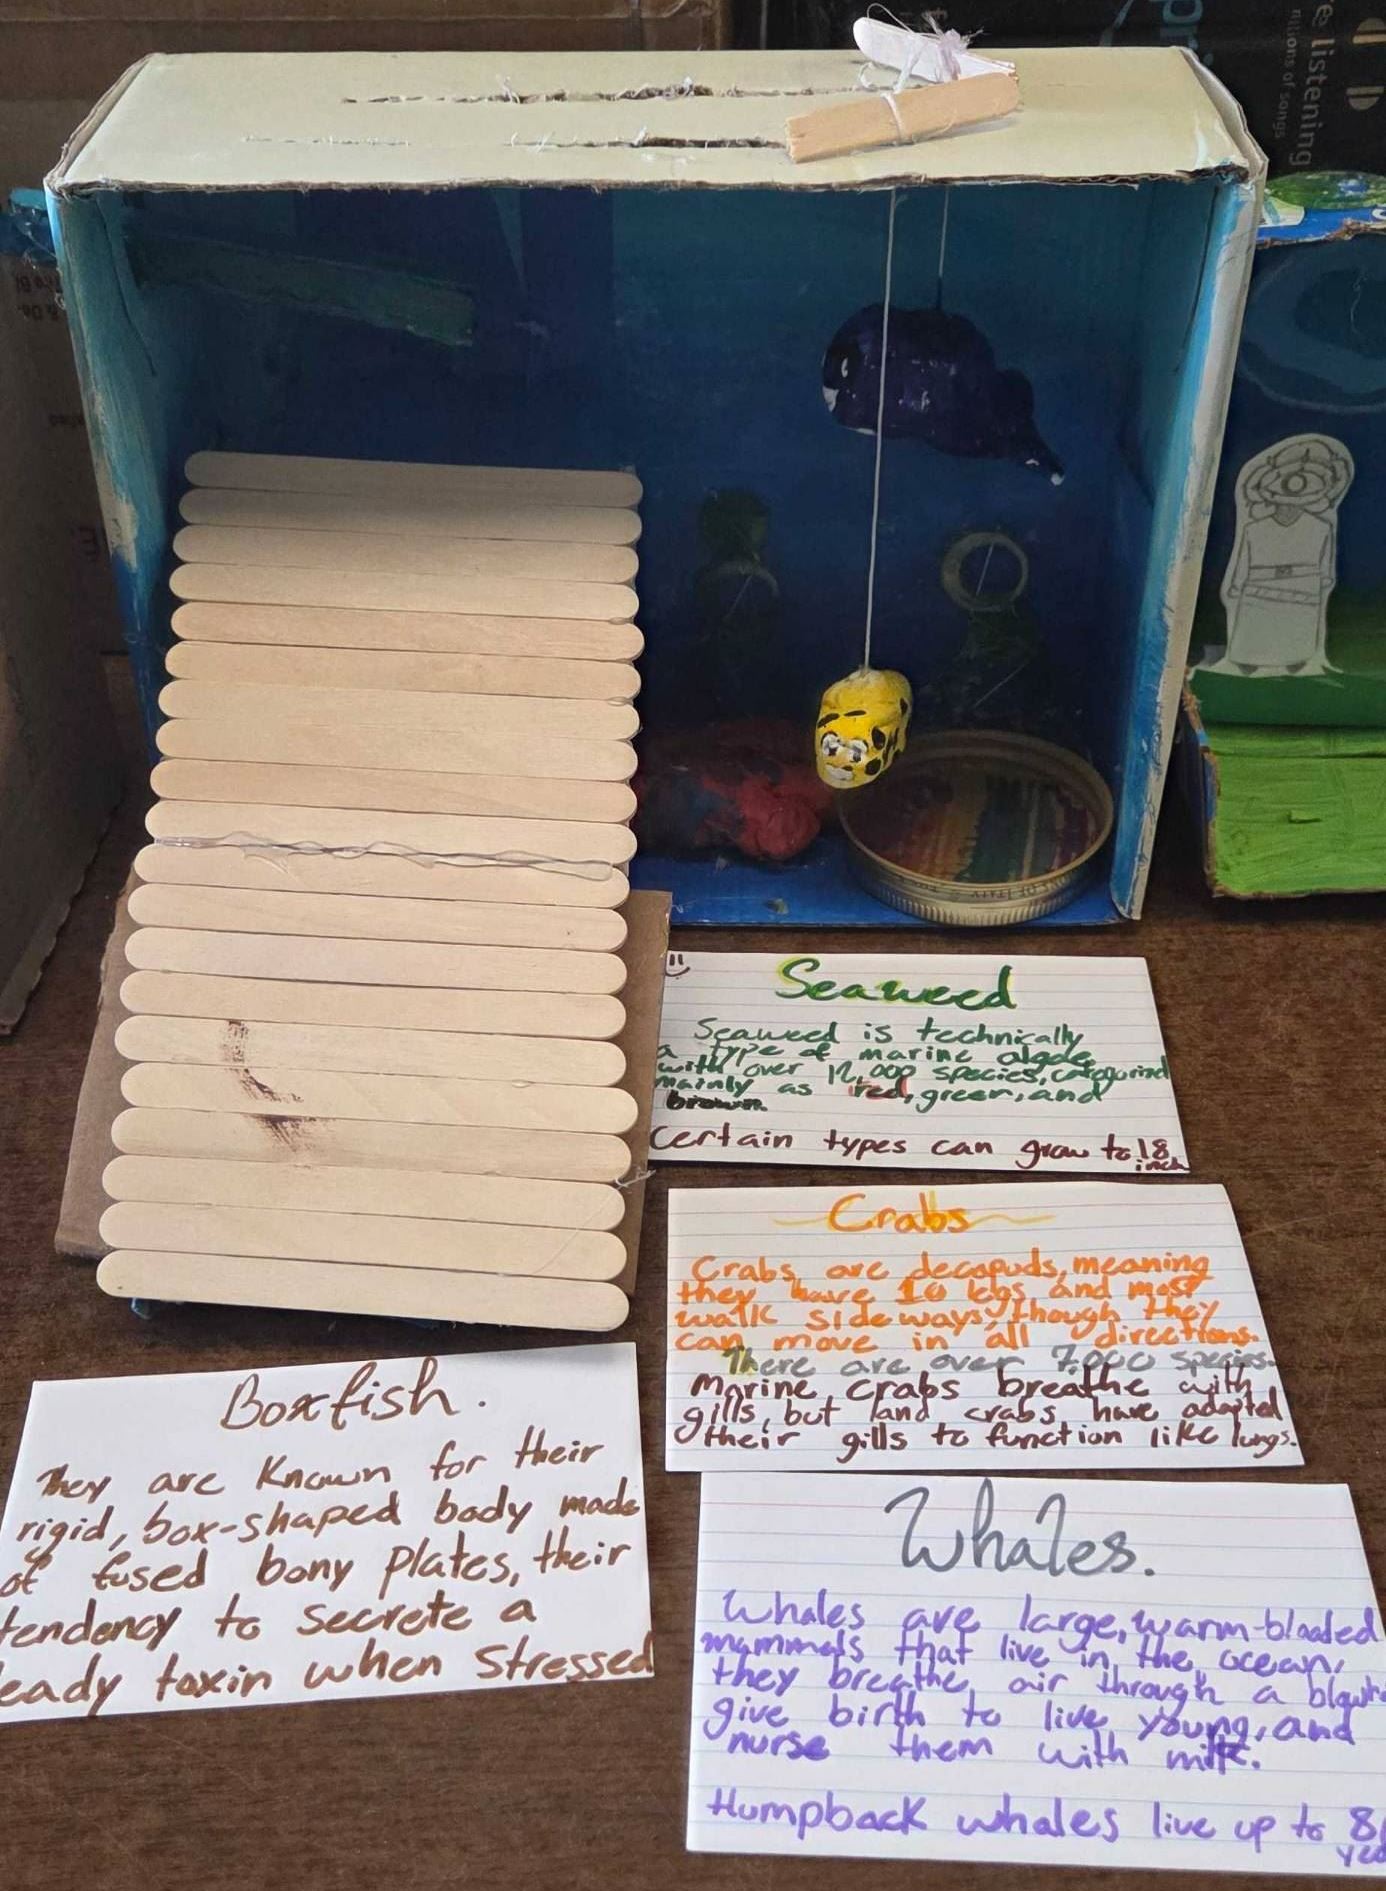 e listening
millions of songs
OF ITALY
Seaweed
Seaweed is technically
a type of marine algae,
with over 12,000 species, categorized
mainly as red, green, and
brown.
Certain types can grow to 18
inch
Crabs
Crabs are decapuds, meaning
they have 10 legs, and most
walk sideways, though they
can move in all directions.
There are over 7,000 species.
Marine crabs breathe with
gills, but land crabs have adapted
their gills to function like lungs.
Boxfish.
They are known for their
rigid, box-shaped body made
of fused bony plates, their
tendency to secrete a
eady toxin when stressed
Whales.
Whales are large, warm-blooded
mammals that live in the ocean,
they breathe air through a blowh
give birth to live young, and
nurse them with milk.
Humpback whales live up to 8
yea